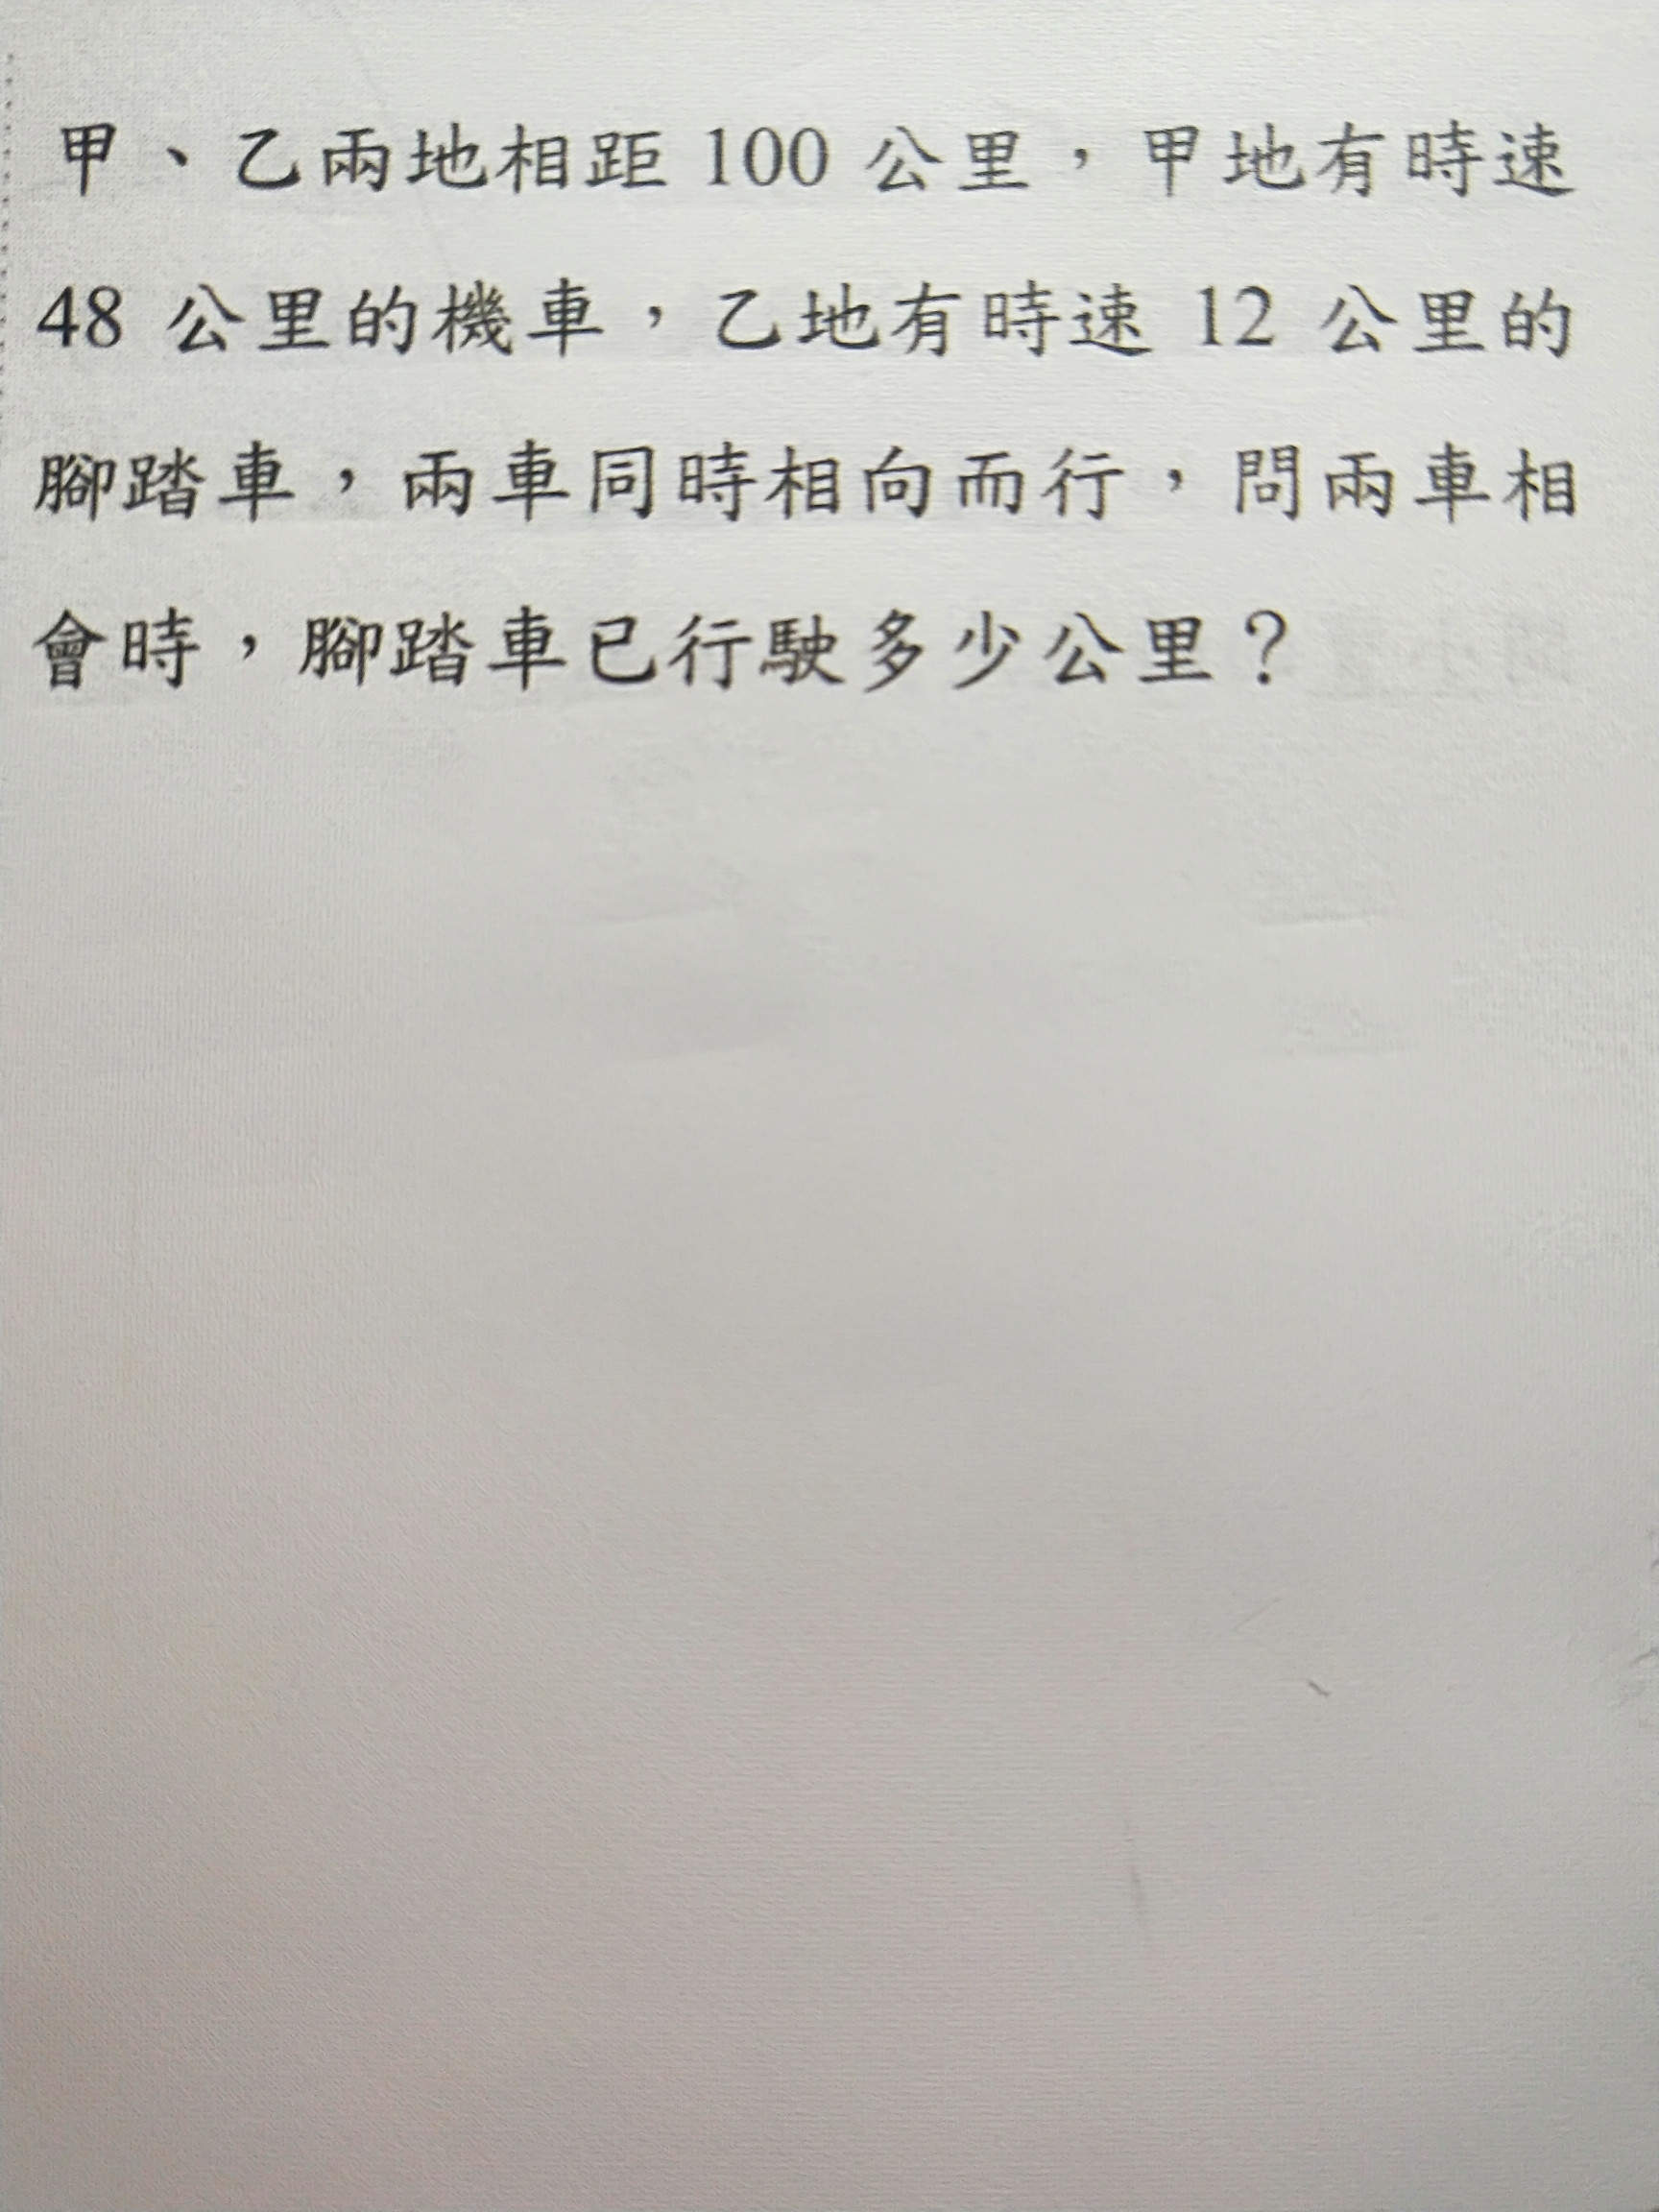 甲、乙兩地相距 100 公里，甲地有時速
48 公里的機車，乙地有時速 12 公里的
腳踏車，兩車同時相向而行，問兩車相
會時，腳踏車已行駛多少公里？